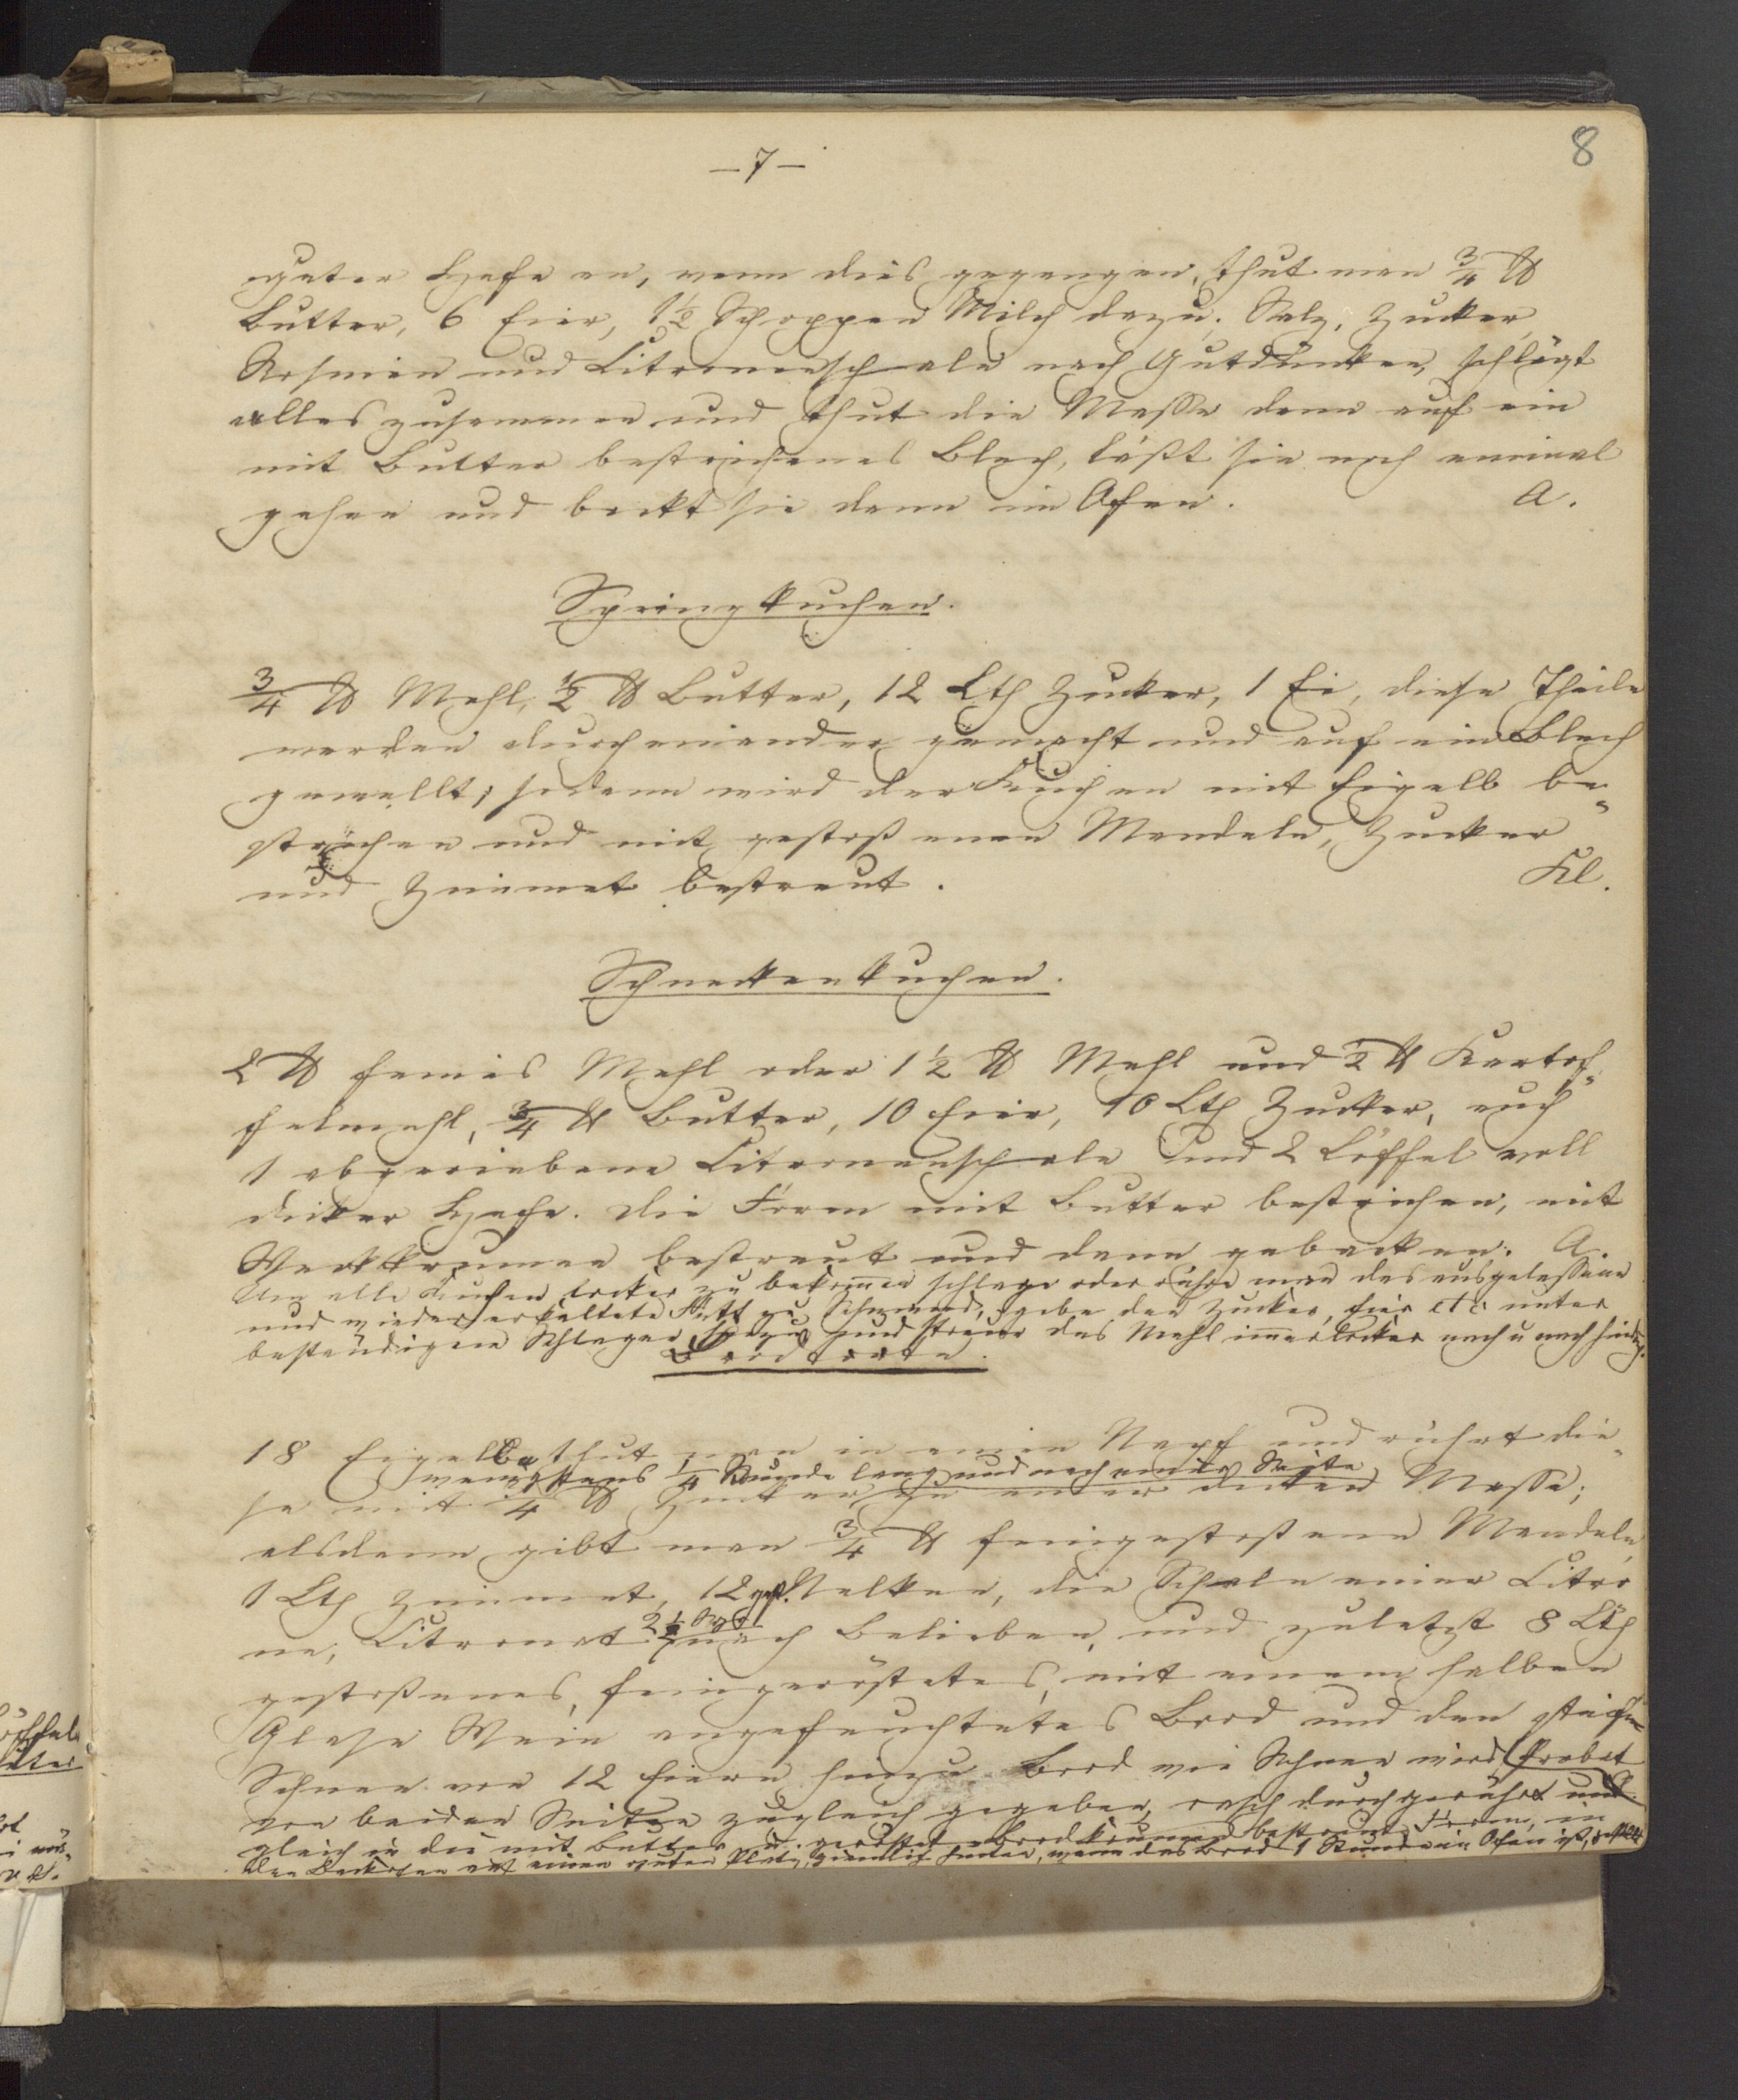 — 7 —
8
guter Hefe an, wenn dies gegangen, thut man 3/4 ℔
Butter, 6 Eier, 1½ Schoppen Milch dazu. Salz, Zucker,
Rosinen und Citronenschale nach Gutdünken, schlägt
alles zusammen und thut die Masse dann auf ein
mit Butter bestrichenes Blech, läßt sie noch einmal
gehen und backt sie dann im Ofen. A.
Springkuchen.
3/4 ℔ Mehl, ½ ℔ Butter, 12 Lth Zucker, 1 Ei, diese Theile
werden durcheinander gemacht und auf ein Blech
gewellt; sodann wird der Kuchen mit Eigelb be„
strichen und mit gestoßenen Mandeln, Zucker
und Zimmet bestreut. Kl.
Schneckenkuchen.
2 ℔ feines Mehl oder 1½ ℔ Mehl und ½ ℔ Kartof„
felmehl, 3/4 ℔ Butter, 10 Eier, 10 Lth Zucker, auch
1 abgeriebene Citronenschale und 2 Löffel voll
dicker Hefe. Die Form mit Butter bestrichen, mit
Weckkrumen bestreut und dann gebacken. A.
Um alle Kuchen locker zu bekommen schlage oder rühre man das ausgelassene
und wieder erkaltete Fett zu Schaum, gebe den Zucker, Eier etc. unter
beständigem Schlagen hinzu und streue das Mehl immer locker nach u nach hinein.
Brodtorte.
18 Eigelbe thut man in einen Napf und rührt die„
wenigstens 1/4 Stunde lang und nach einer Seite
se mit 3/4 ℔ Zucker zu einer dicken Masse;
alsdann gibt man 3/4 ℔ feingestoßene Mandeln,
1 Lth Zimmet, 12 gest. Nelken, die Schale einer Citro
ne, Citronat nach Belieben, und zuletzt 8 Lth
gestoßenes, feingeröstetes, mit einem halben
Glase Wein angefeuchtetes Brod und den steifen
Schnee von 12 Eiern hinzu. Brod wie Schnee wird probat
von beiden Seiten zugleich gegeben, rasch durchgerührt und
gleich in die mit Butter u. geröstete Brodkrumen bestreute Form, in
den Backofen auf einen guten Platz, ziemlich hinten, wenn das Brod 1 Stunde im Ofen ist, gestellt